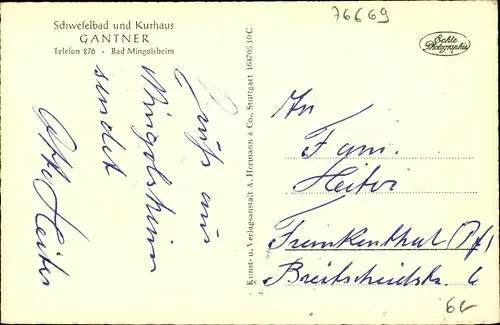 76669
Schwefelbad und Kurhaus
GANTNER
Telefon 276 - Bad Mingolsheim
Echte
Photographie
Gruß aus
Mingolsheim
sendet
Otto Heiter
Kunst- u. Verlagsanstalt A. Hermann & Co., Stuttgart 164705 10 C
An
Fam.
Frankenthal (Pf)
Breitscheidstr. 6